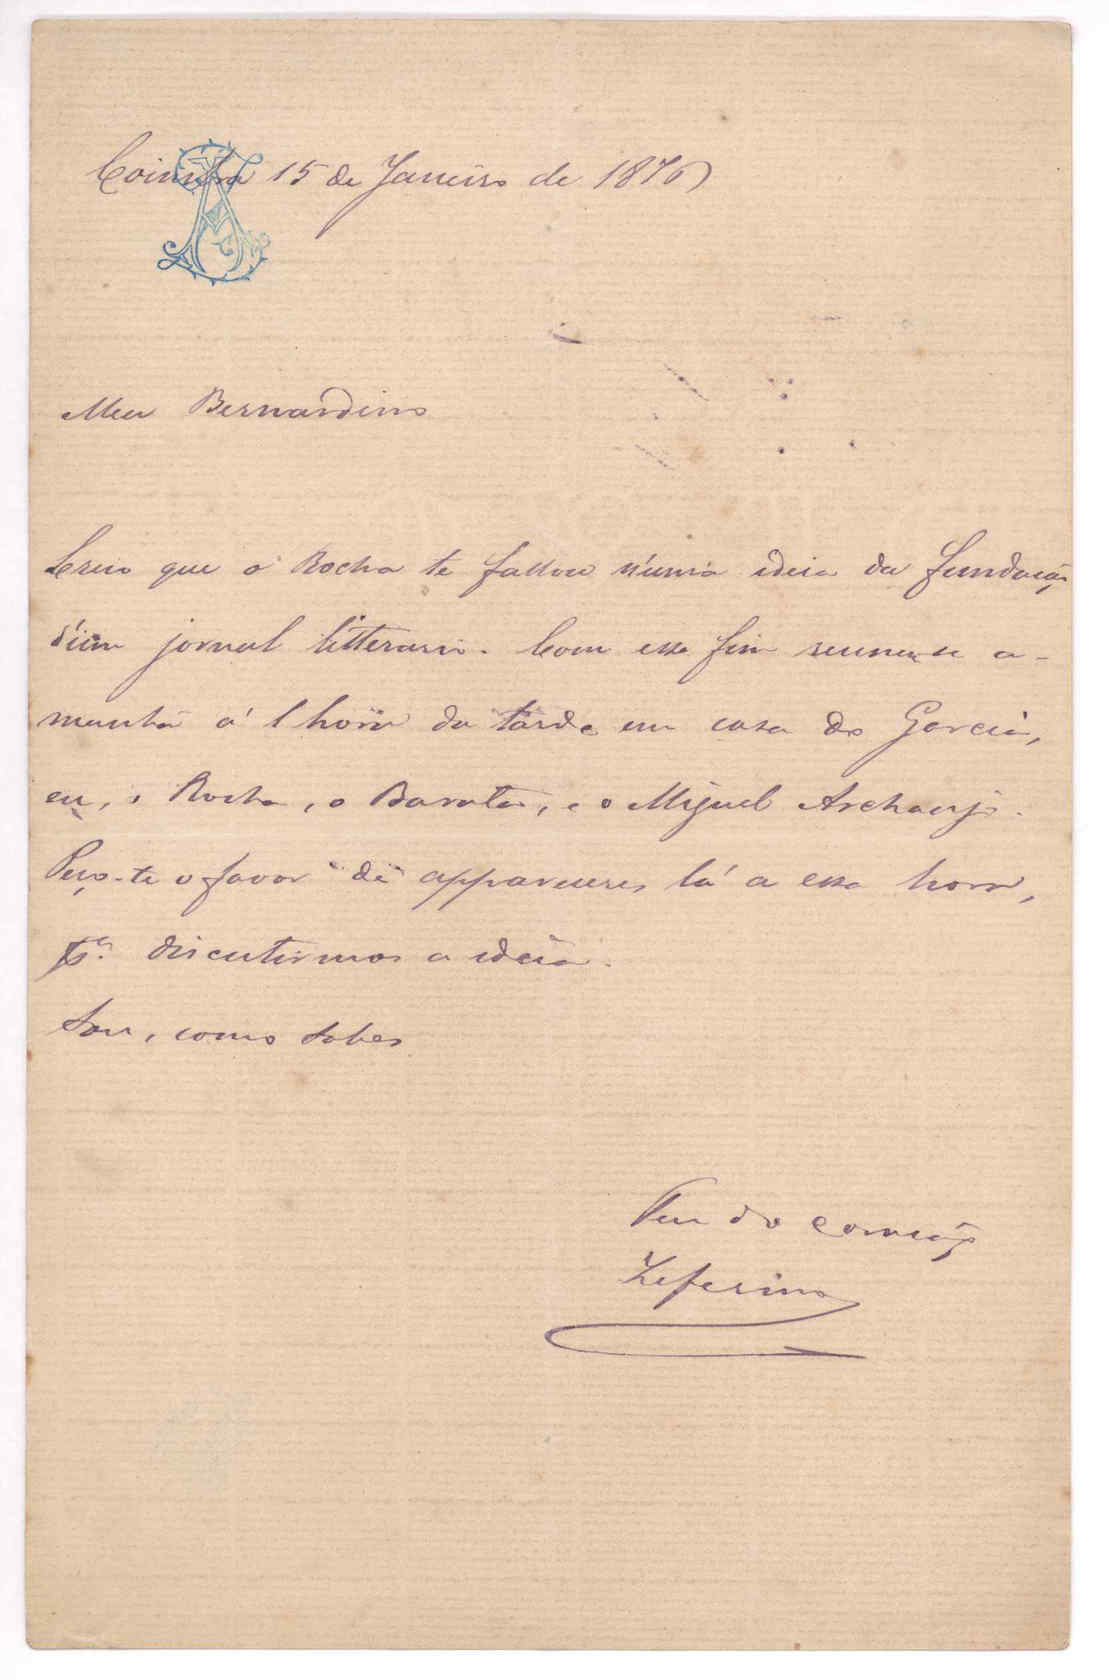 Coimbra 15 de Janeiro de 1876
Meu Bernardino
Creio que o Rocha te fallou n'uma ideia da fundação
d'um jornal litterario. Com esse fim reunem-se a-
manhã á 1 hora da tarde em casa do Garcia,
eu, o Rocha, o Barata, e o Miguel Archanjo.
Peço-te o favor de appareceres lá a essa hora,
pª. discutirmos a ideia.
Sou, como sabes
Teu do coração
Zeferino